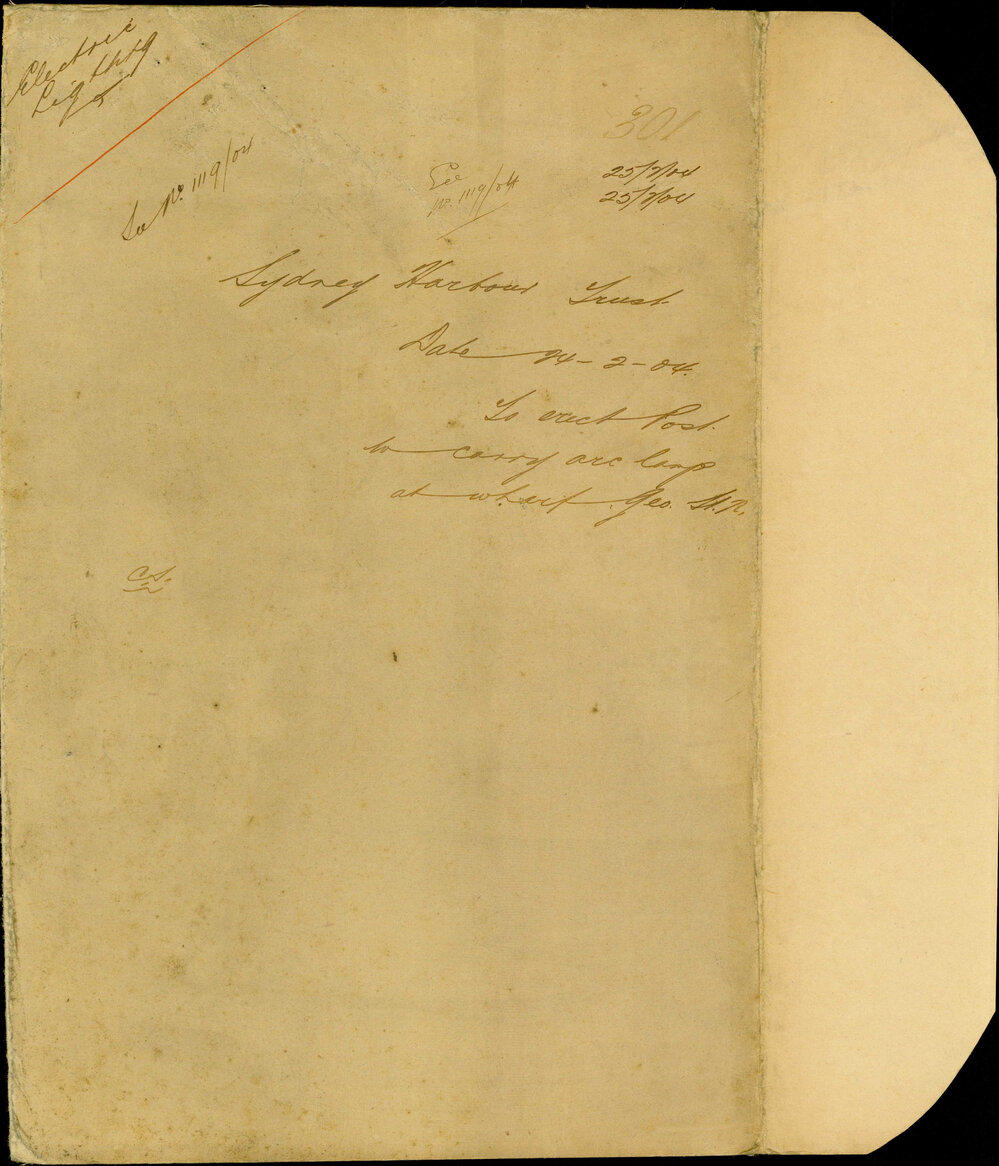 Electric
Lightg
301
See No. 1119/04
See
No. 1119/04
25/2/04
25/2/04
Sydney Harbour Trust
Date 24-2-04.
To erect Post
to carry arc lamp
at wharf Geo. St. N.